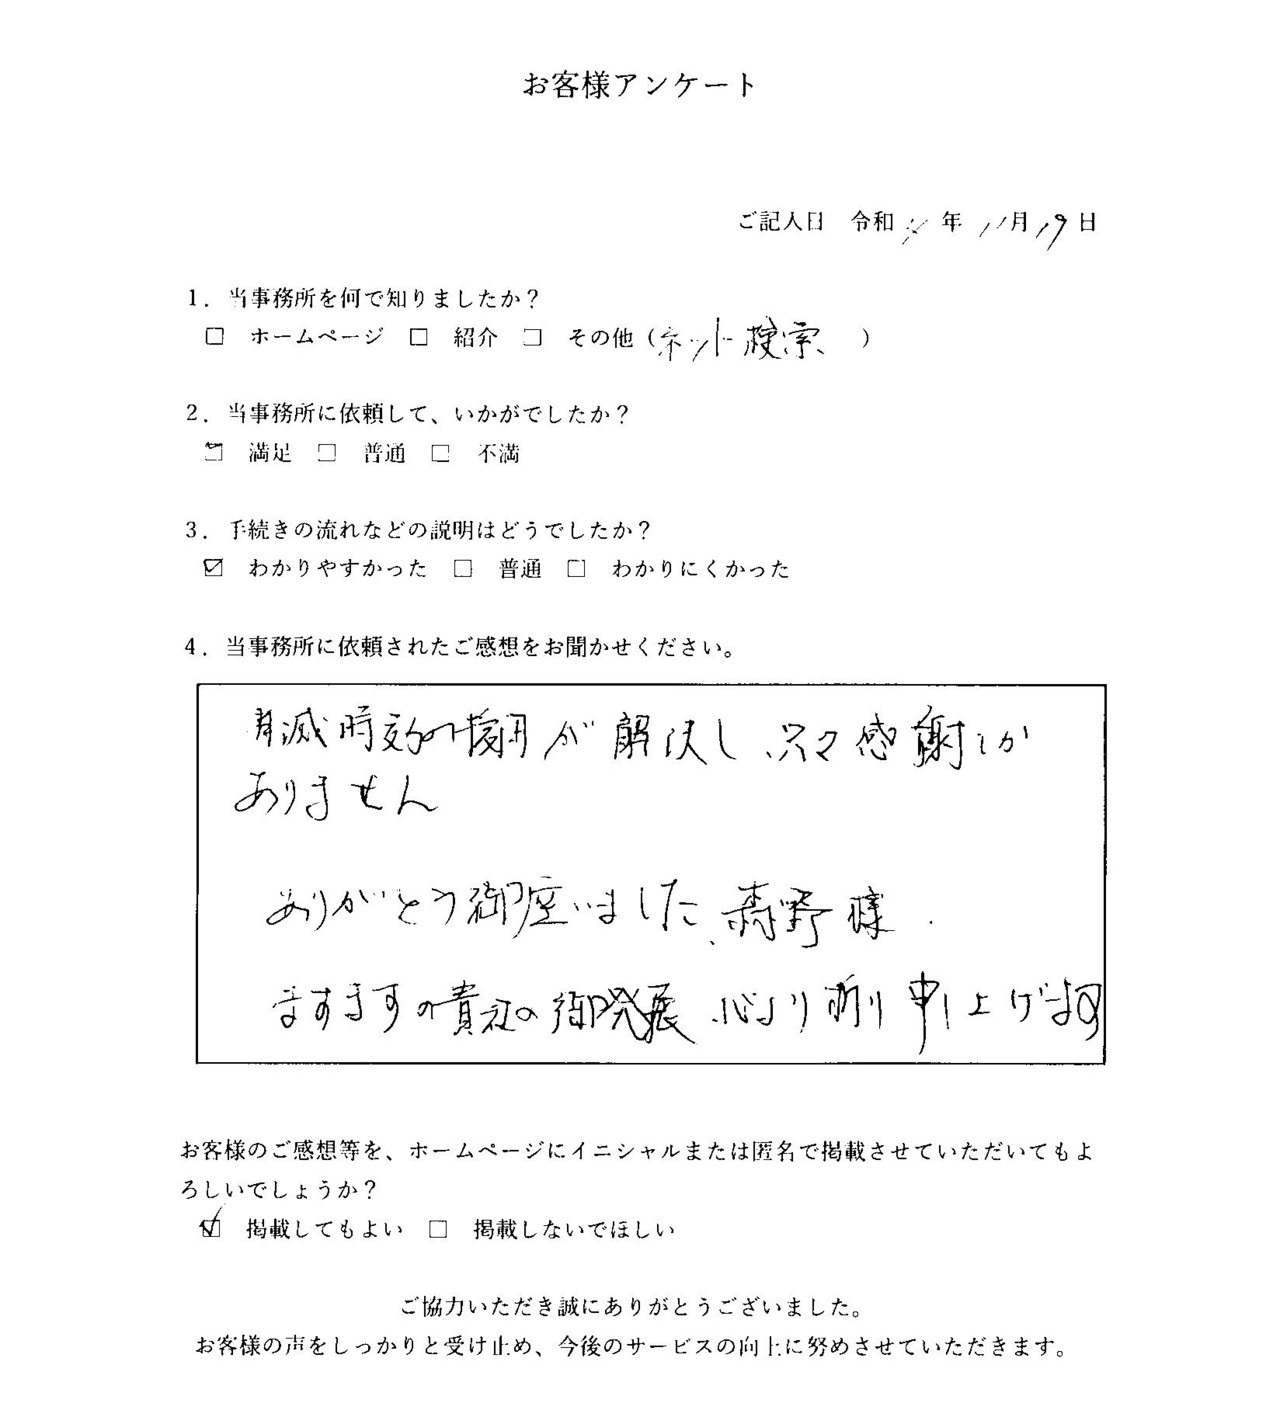 お客様アンケート
ご記入日 令和 年 11月19日
1. 当事務所を何で知りましたか？
□ ホームページ □ 紹介 □ その他（ネット検索 ）
2. 当事務所に依頼して、いかがでしたか？
☑ 満足 □ 普通 □ 不満
3. 手続きの流れなどの説明はどうでしたか？
☑ わかりやすかった □ 普通 □ わかりにくかった
4. 当事務所に依頼されたご感想をお聞かせください。
消滅時効の援用が解決し、只々感謝しか
ありません
ありがとう御座いました、森野様.
ますますの貴社の御発展、心より祈り申し上げます
お客様のご感想等を、ホームページにイニシャルまたは匿名で掲載させていただいてもよ
ろしいでしょうか？
☑ 掲載してもよい □ 掲載しないでほしい
ご協力いただき誠にありがとうございました。
お客様の声をしっかりと受け止め、今後のサービスの向上に努めさせていただきます。